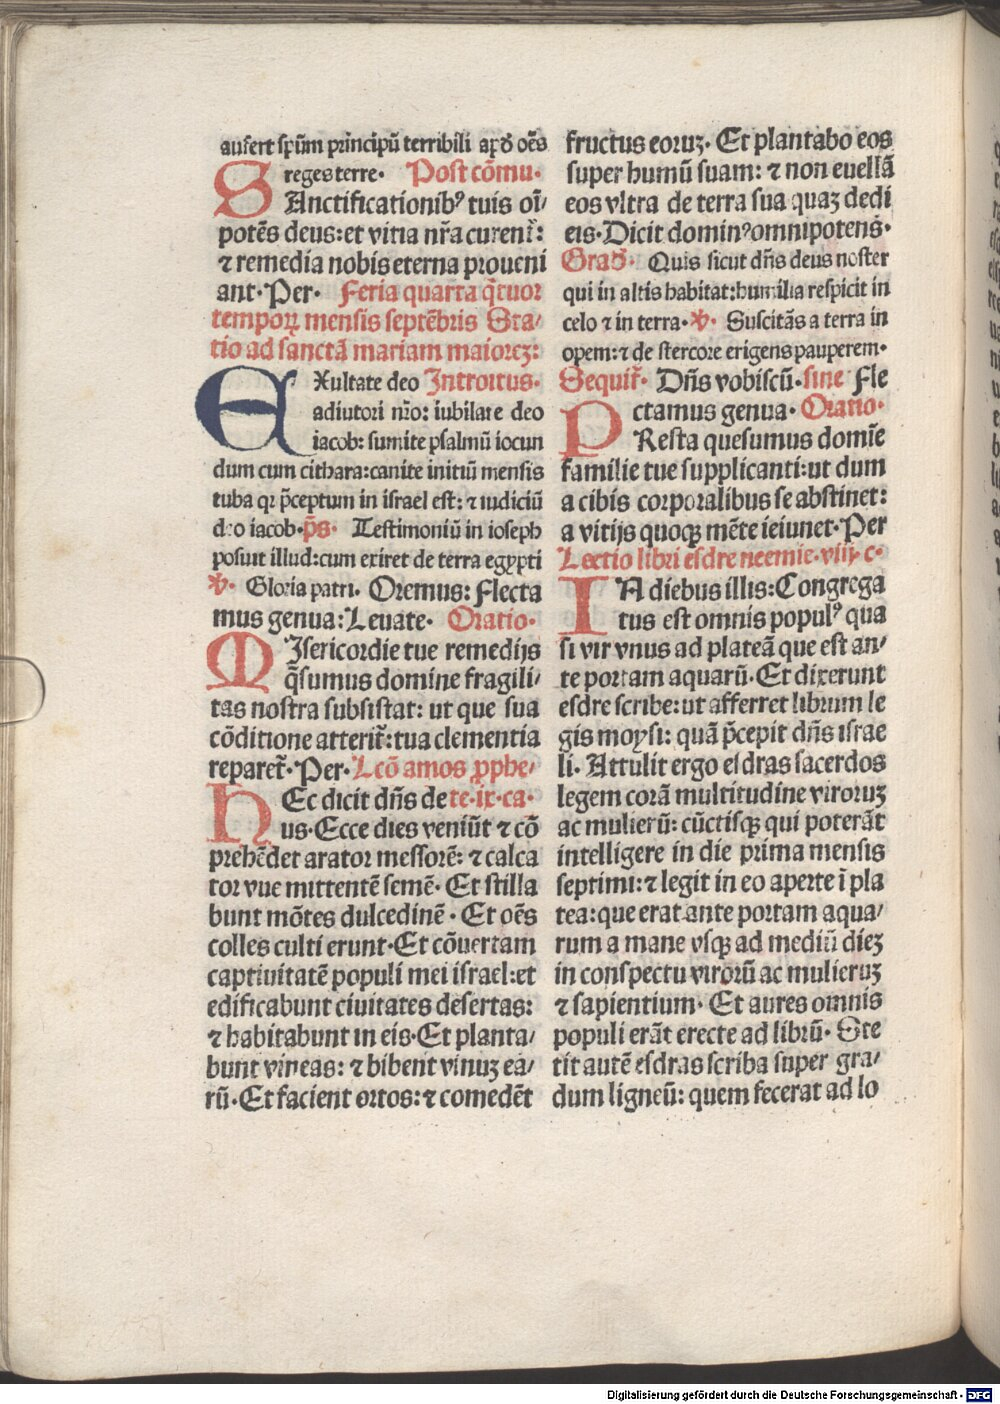 aufert spūm principū terribili apð oēs
reges terre. Post cōmu.
SAnctificationibꝰ tuis oī/
potēs deus: et vitia nr̄a curent̄:
⁊ remedia nobis eterna proueni
ant. Per. Feria quarta q̄tuor
temporꝝ mensis septēbris Sta/
tio ad sanctā mariam maiorez:
EXultate deo Introitus.
adiutori nr̄o: iubilate deo
iacob: sumite psalmū iocun
dum cum cithara: canite initiū mensis
tuba qꝛ p̄ceptum in israel est: ⁊ iudiciū
deo iacob. p̄s. Testimoniū in ioseph
posuit illud: cum exiret de terra egypti
℣. Gloria patri. Oremus: Flecta
mus genua: Leuate. Oratio.
MIsericordie tue remedijs
q̄sumus domine fragili/
tas nostra subsistat: ut que sua
cōditione atterit̄: tua clementia
reparet̄. Per. Lcō amos ꝓphe/
HEc dicit dn̄s de te. ix. ca.
us. Ecce dies veniūt ⁊ cō
prehēdet arator messorē: ⁊ calca
tor vue mittentē semē. Et stilla
bunt mōtes dulcedinē. Et oēs
colles culti erunt. Et cōuertam
captiuitatē populi mei israel: et
edificabunt ciuitates desertas:
⁊ habitabunt in eis. Et planta/
bunt vineas: ⁊ bibent vinuz ea/
rū. Et facient ortos: ⁊ comedēt
fructus eoruz. Et plantabo eos
super humū suam: ⁊ non euellā
eos vltra de terra sua quaz dedi
eis. Dicit dominꝰ omnipotens.
Grað. Quis sicut dn̄s deus noster
qui in altis habitat: humilia respicit in
celo ⁊ in terra. ℣. Suscitās a terra in
opem: ⁊ de stercore erigens pauperem.
Sequit̄. Dn̄s vobiscū. sine Fle
ctamus genua. Oratio.
PResta quesumus domīe
familie tue supplicanti: ut dum
a cibis corporalibus se abstinet:
a vitijs quoqꝫ mēte ieiunet. Per
Lectio libri esdre neemie. viij. c.
IN diebus illis: Congrega
tus est omnis populꝰ qua
si vir vnus ad plateā que est an/
te portam aquarū. Et dixerunt
esdre scribe: ut afferret librum le
gis moysi: quā p̄cepit dn̄s israe
li. Attulit ergo esdras sacerdos
legem corā multitudine viroruz
ac mulierū: cūctisqꝫ qui poterāt
intelligere in die prima mensis
septimi: ⁊ legit in eo aperte ī pla
tea: que erat ante portam aqua/
rum a mane vsqꝫ ad mediū diez
in conspectu virorū ac mulieruz
⁊ sapientium. Et aures omnis
populi erāt erecte ad librū. Ste
tit autē esdras scriba super gra/
dum ligneū: quem fecerat ad lo
Digitalisierung gefördert durch die Deutsche Forschungsgemeinschaft - DFG